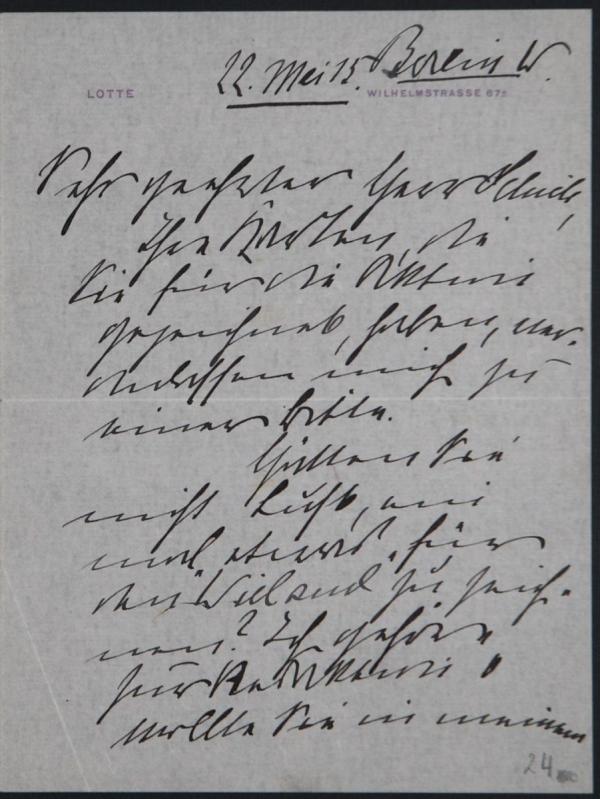 22. Mei 15. Berlin W.
LOTTE
WILHELMSTRASSE 67a
Sehr geehrter Herr
Ihre Karten, die
Sie für die
gezeichnet, haben, ver-
anlassen mich zu
einer Bitte.
Hätten Sie
nicht Lust, ein
mal etwas für
den "Wieland" zu zeich-
nen? Ich gehöre
zur Redaktion
wollte Sie in meinem
24